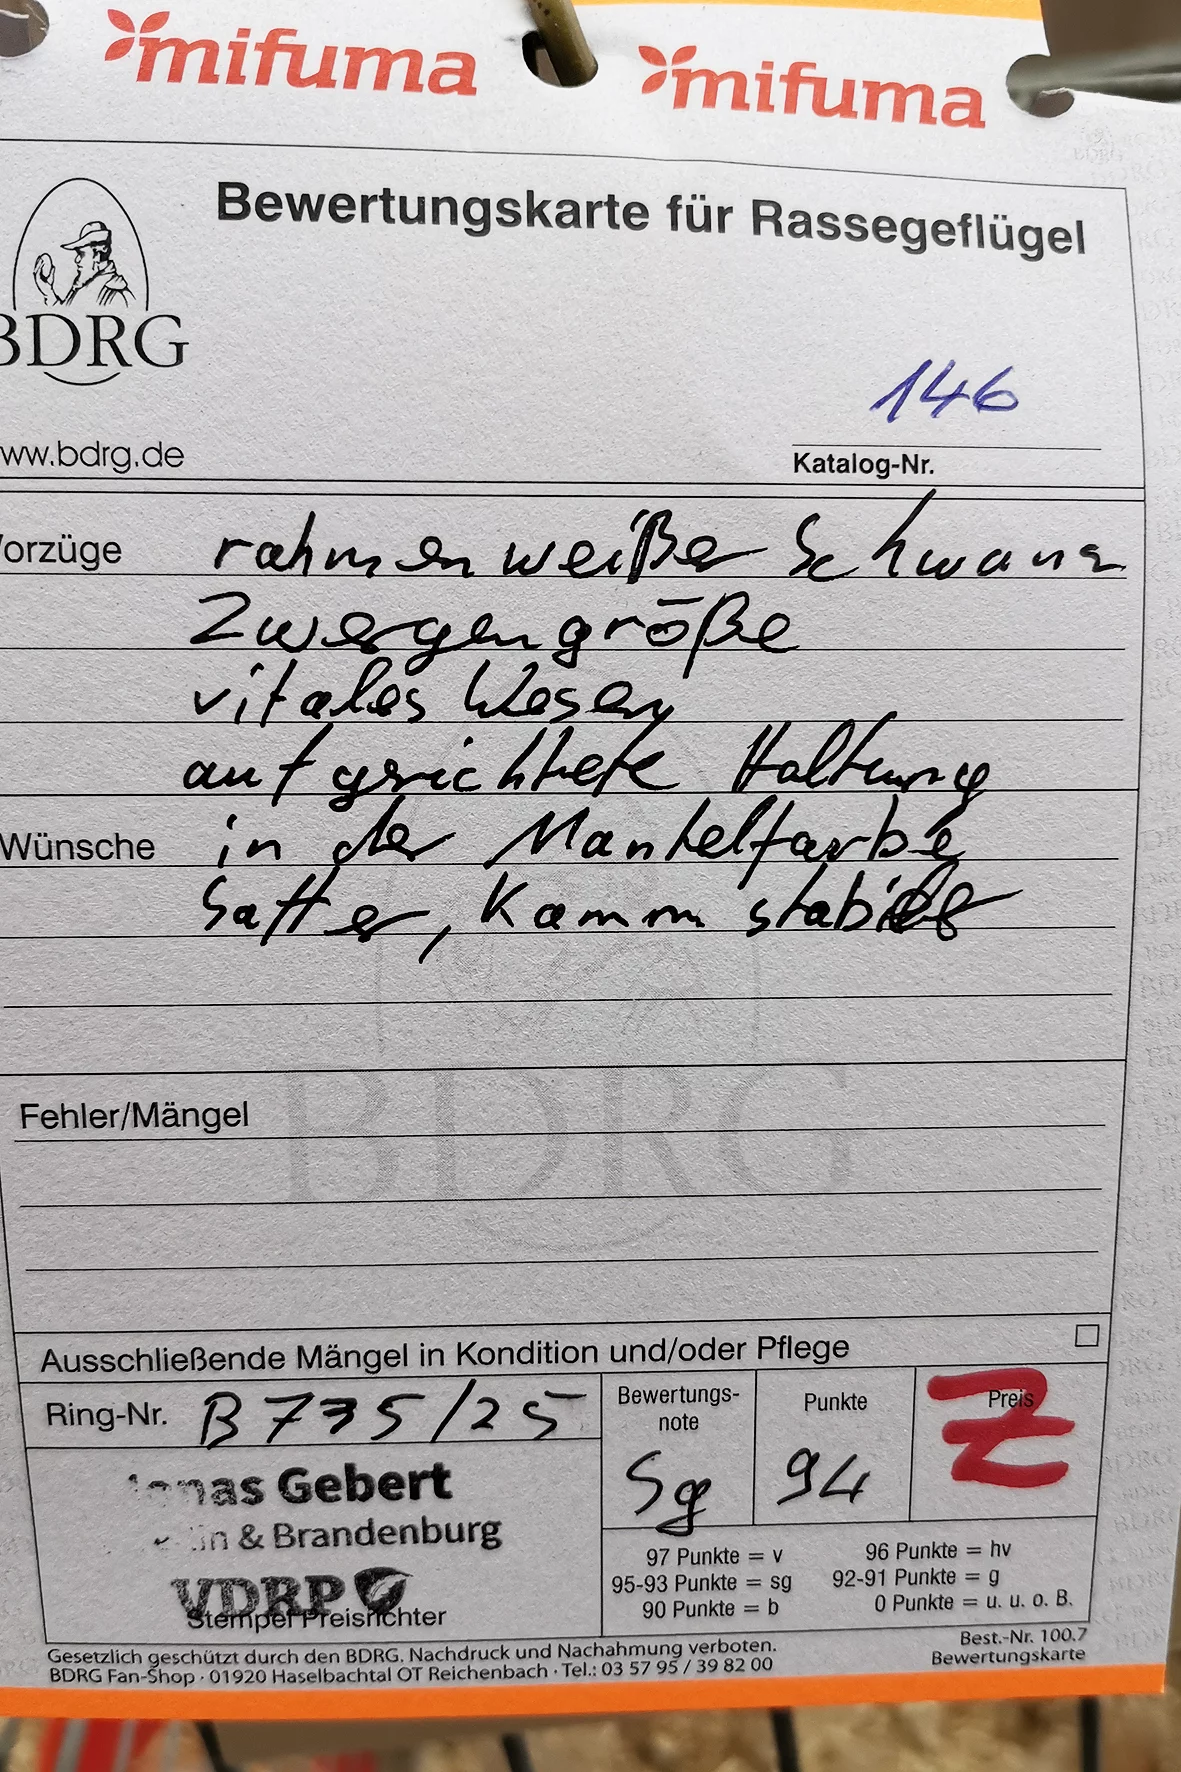 mifuma mifuma
Bewertungskarte für Rassegeflügel
BDRG
ww.bdrg.de
146
Katalog-Nr.
Vorzüge rahmenweißer Schwanz
Zwergengröße
vitales Wesen
aufgerichtete Haltung
Wünsche in der Mantelfarbe
satter, Kamm stabiler
BDRG
Fehler/Mängel
Ausschließende Mängel in Kondition und/oder Pflege
Ring-Nr. B 735/25
Bewertungs-
note
Sg
Punkte
94
Preis
Z
Jonas Gebert
& Brandenburg
VDRP
Stempel Preisrichter
97 Punkte = v 96 Punkte = hv
95-93 Punkte = sg 92-91 Punkte = g
90 Punkte = b 0 Punkte = u. u. o. B.
Gesetzlich geschützt durch den BDRG. Nachdruck und Nachahmung verboten.
BDRG Fan-Shop · 01920 Haselbachtal OT Reichenbach · Tel.: 03 57 95 / 39 82 00
Best.-Nr. 100.7
Bewertungskarte